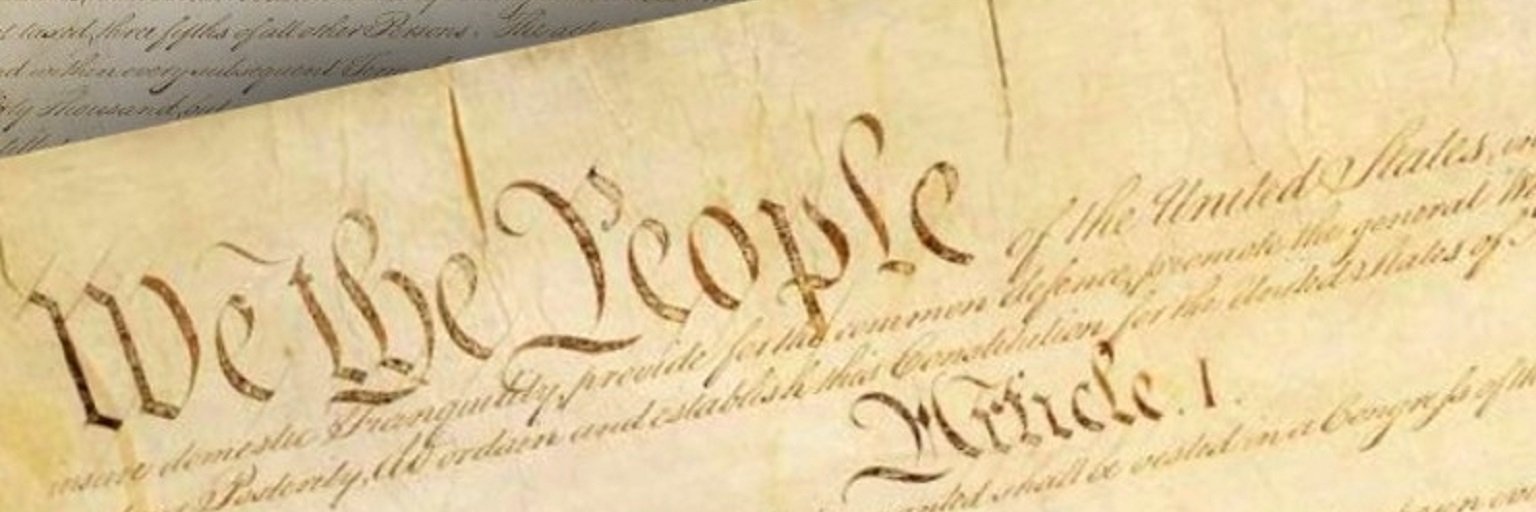 taxed, three fifths of all other Persons. The act
within every subsequent Term
Thousand, but
We the People of the United States, in
insure domestic Tranquility, provide for the common defence, promote the general We
Posterity, do ordain and establish this Constitution for the United States of
Article. I.
shall be vested in a Congress of the